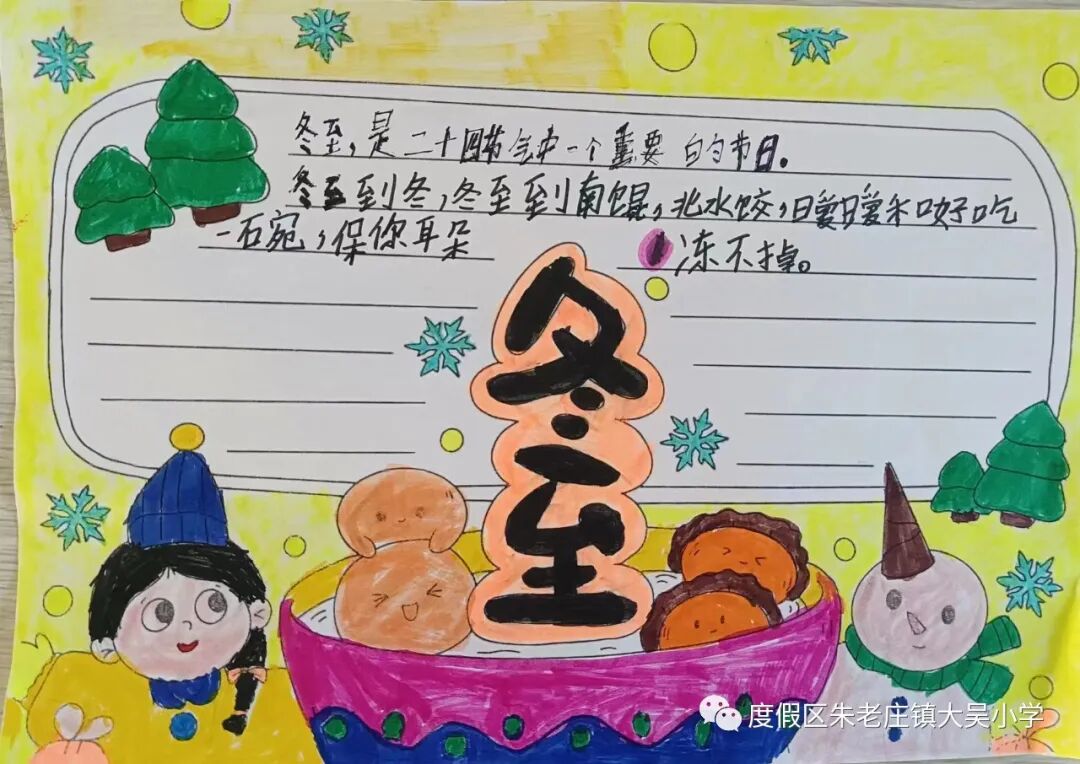 冬至,是二十四节气中一个重要的节日。
冬至到冬,冬至到南馄,北水饺,暖暖和好吃
一碗,保你耳朵 冻不掉。
冬至
度假区朱老庄镇大吴小学